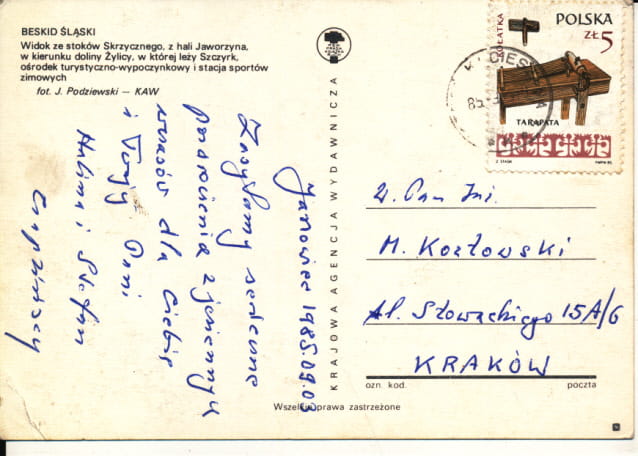 BESKID ŚLĄSKI
Widok ze stoków Skrzycznego, z hali Jaworzyna,
w kierunku doliny Żylicy, w której leży Szczyrk,
ośrodek turystyczno-wypoczynkowy i stacja sportów
zimowych
fot. J. Podziewski — KAW
KRAJOWA AGENCJA WYDAWNICZA
KOŁATKA
POLSKA
ZŁ 5
TARAPATA
85
1985.09.03
Zasyłamy serdeczne
pozdrowienia z jesiennych
wczasów dla Ciebie
i Twojej Pani
Halina i Stefan
W. Pan Inż.
M. Kozłowski
Al. Słowackiego 15A/6
KRAKÓW
ozn. kod.
poczta
Wszelkie prawa zastrzeżone